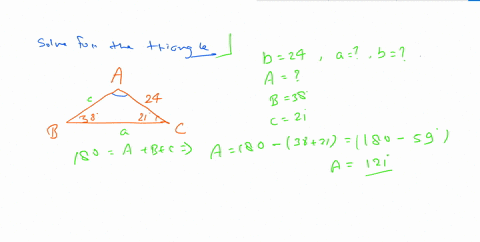 Solve for the triangle
b = 24 , a = ? . b = ? .
A = ?
B = 38°
C = 21°
A
c 24
38° 21°
B a C
180 = A + B + C ⇒ A = 180 - (38 + 21) = (180 - 59°)
A = 121°